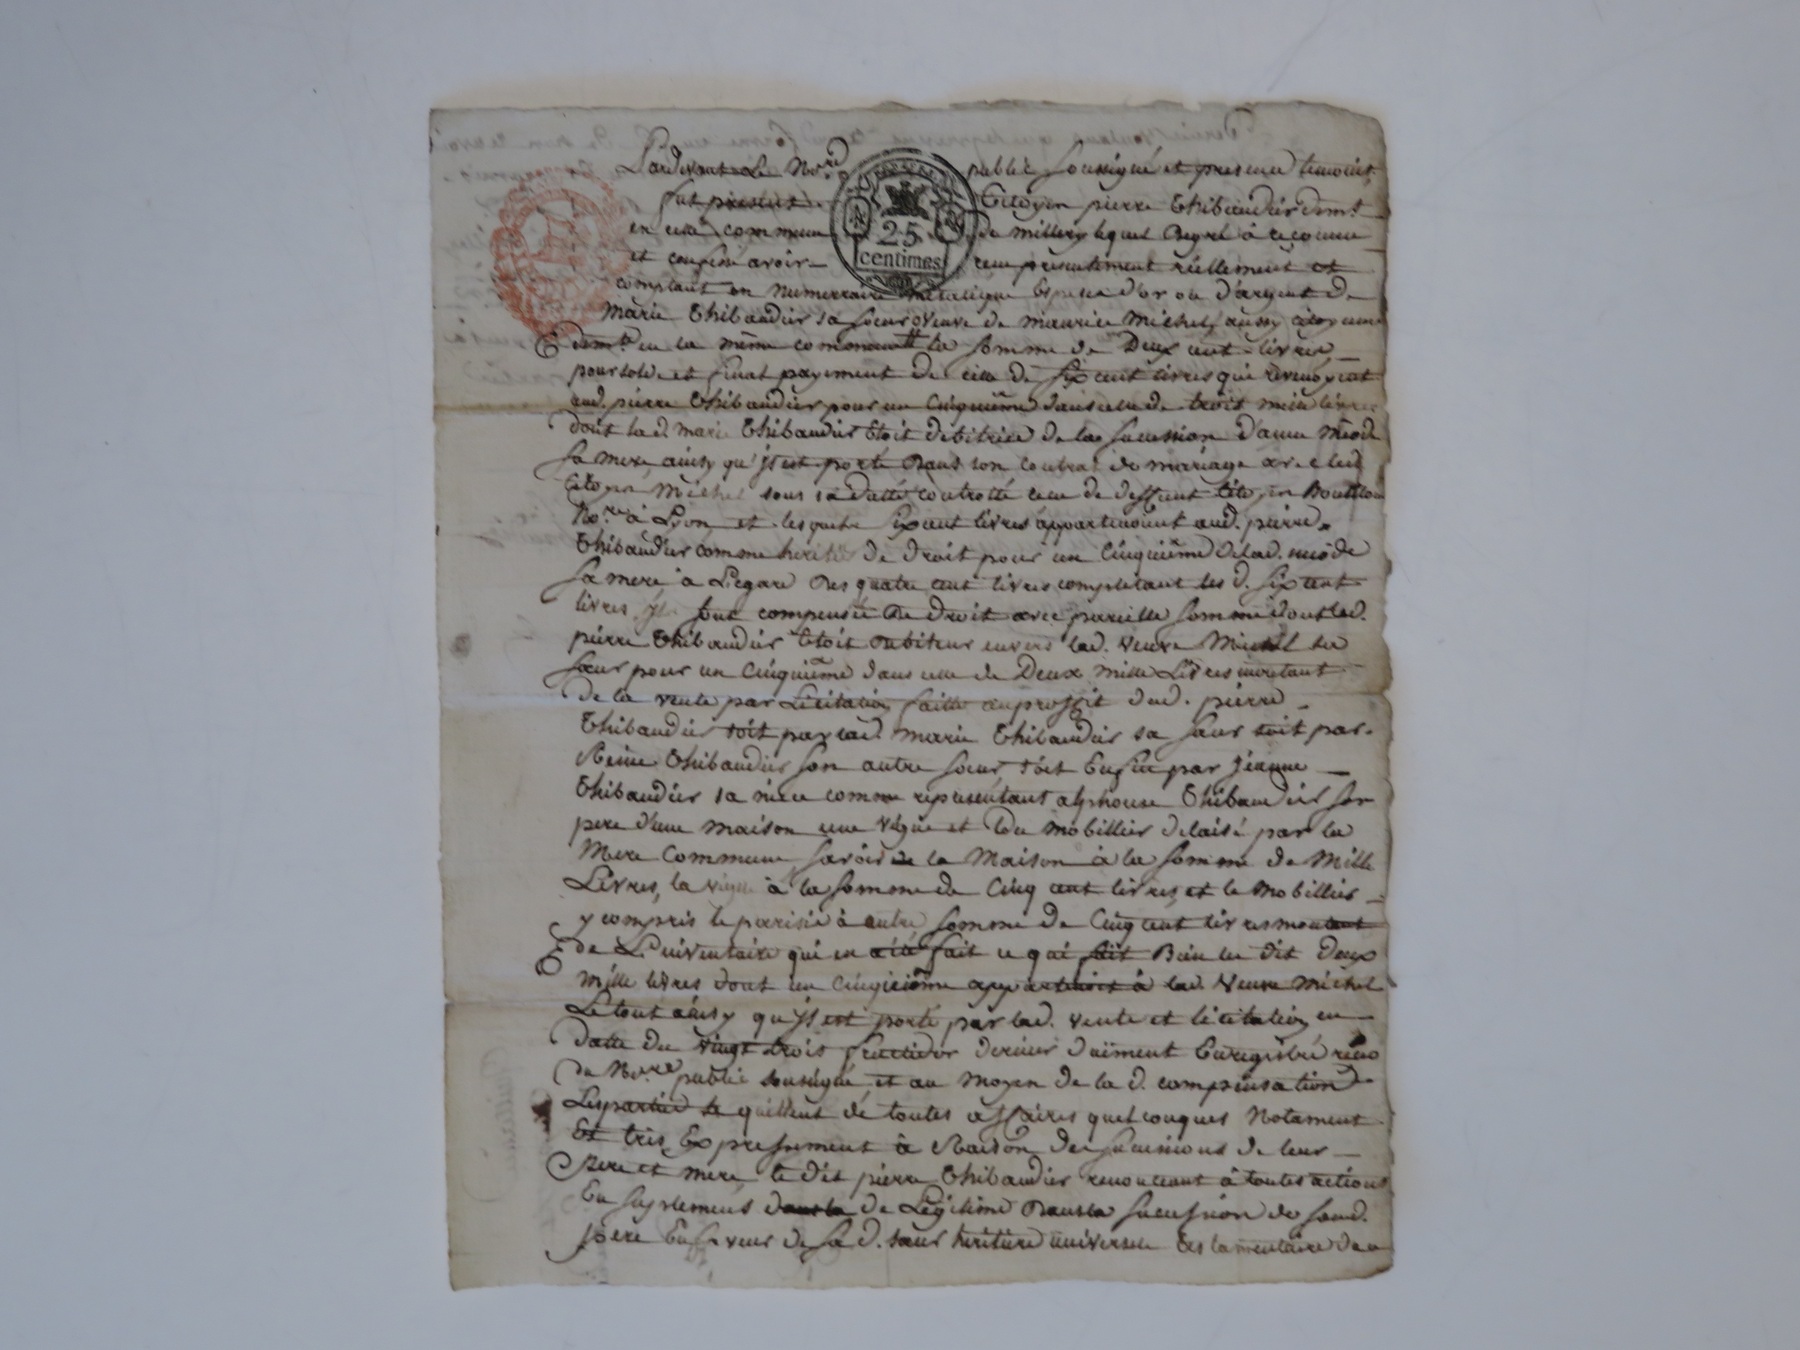 Pardevant Le No.re public soussigné et presence temoins,
fut présent Citoyen pierre Thibaudier dem.t
en cette commune de millery lequel a reconnu
et confessé avoir receu présentement réellement et
25
centimes
comptant en Numerraire métalique Espesces d'or ou d'argent de
Marie Thibaudier sa soeur veuve de maurice Michel, aussy citoyenne
dem.te en la même commune la somme de Deux cent livres,
pour solde et final payement de celle de Six cent livres qui revenoient
aud. pierre Thibaudier pour un Cinquième dans celle de trois mille livres
dont lad. marie Thibaudier étoit débitrice de la succession d'anne
sa mere ainsy qu'jl est porté Dans son Contrat de mariage avec led.
Citoyen Michel sous sa datte controllé receu de deffunt Citoyen
No.re à Lyon et lesquels Six cent livres appartenoient aud. pierre
Thibaudier comme heritier de droit pour un Cinquième delad.
sa mere à L'egard Des quatre cent livres completant les d. Six cent
livres sont compensée De droit avec pareille somme dont led.
pierre Thibaudier étoit Debiteur envers lad. veuve Michel sa
sœur pour un Cinquième dans celle de Deux mille Livres
De la vente par Licitation faitte au proffit dud. pierre
Thibaudier soit par lad. marie Thibaudier sa sœur soit par
Reine Thibaudier son autre sœur soit Enfin par jeanne
Thibaudier sa niece comme representant alphonse Thibaudier son
pere d'une maison une vigne et Du mobillier delaisé par la
Mere Commune savoir la Maison à la somme de Mille
Livres, la vigne à la somme de Cinq cent livres, et le mobillier
y compris le à autre somme de Cinq cent livres montant
de L'inventaire qui en a été fait ce qui fait Bien les dit Deux
mille livres dont un Cinquième appartenoit à lad. Veuve Michel
Le tout ainsy qu'jl est porté par lad. vente et licitation en
datte du vingt trois fructidor dernier duëment Enregistré
du No.re public soussigné, et au moyen de la d. compensation
Les parties se quittent de toutes affaires quelconques Notament
Et très Expressement à Raison des successions de leur
Pere et mere, le dit pierre Thibaudier renonceant à toutes actions
En suplement de Légitime Dans la succession de sond.
Pere En faveur de sa d. sœur heritiere universelle testamentaire